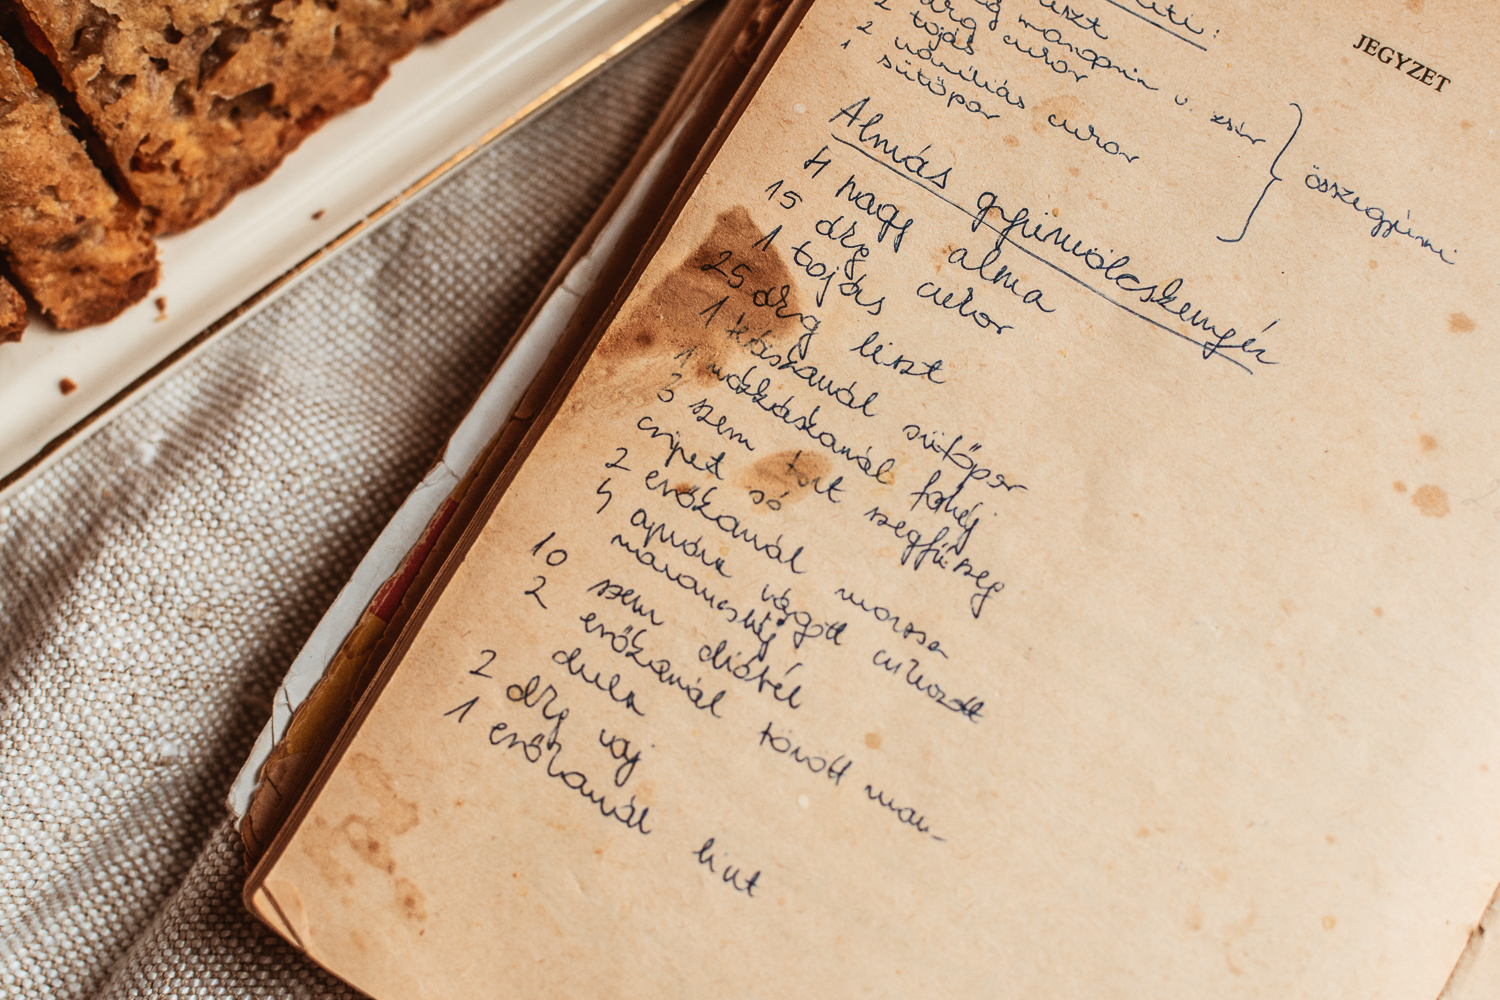 liszt
drg margarin v. zsír
drg cukor
2 tojás
1 vaníliás cukor
sütőpor
összegyúrni
JEGYZET
Almás gyümölcskenyér
4 nagy alma
15 drg cukor
1 tojás
25 drg liszt
1 kávéskanál sütőpor
1 mokkáskanál fahéj
3 szem tört szegfűszeg
csipet só
2 evőkanál mazsola
5 apróra vágott cukrozott
narancshéj
10 szem dióbél
2 evőkanál tönött man-
dula
2 drg vaj
1 evőkanál liszt